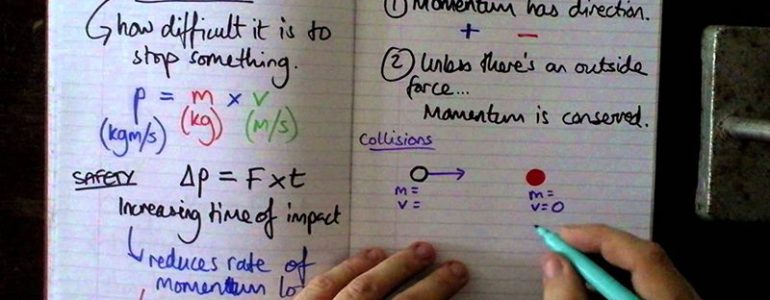 how difficult it is to
stop something.
p = m × v
(kgm/s) (kg) (m/s)
SAFETY Δp = F × t
Increasing time of impact
reduces rate of
momentum lo
① Momentum has direction.
+ −
② Unless there's an outside
force...
Momentum is conserved.
Collisions
m = m =
v = v = 0